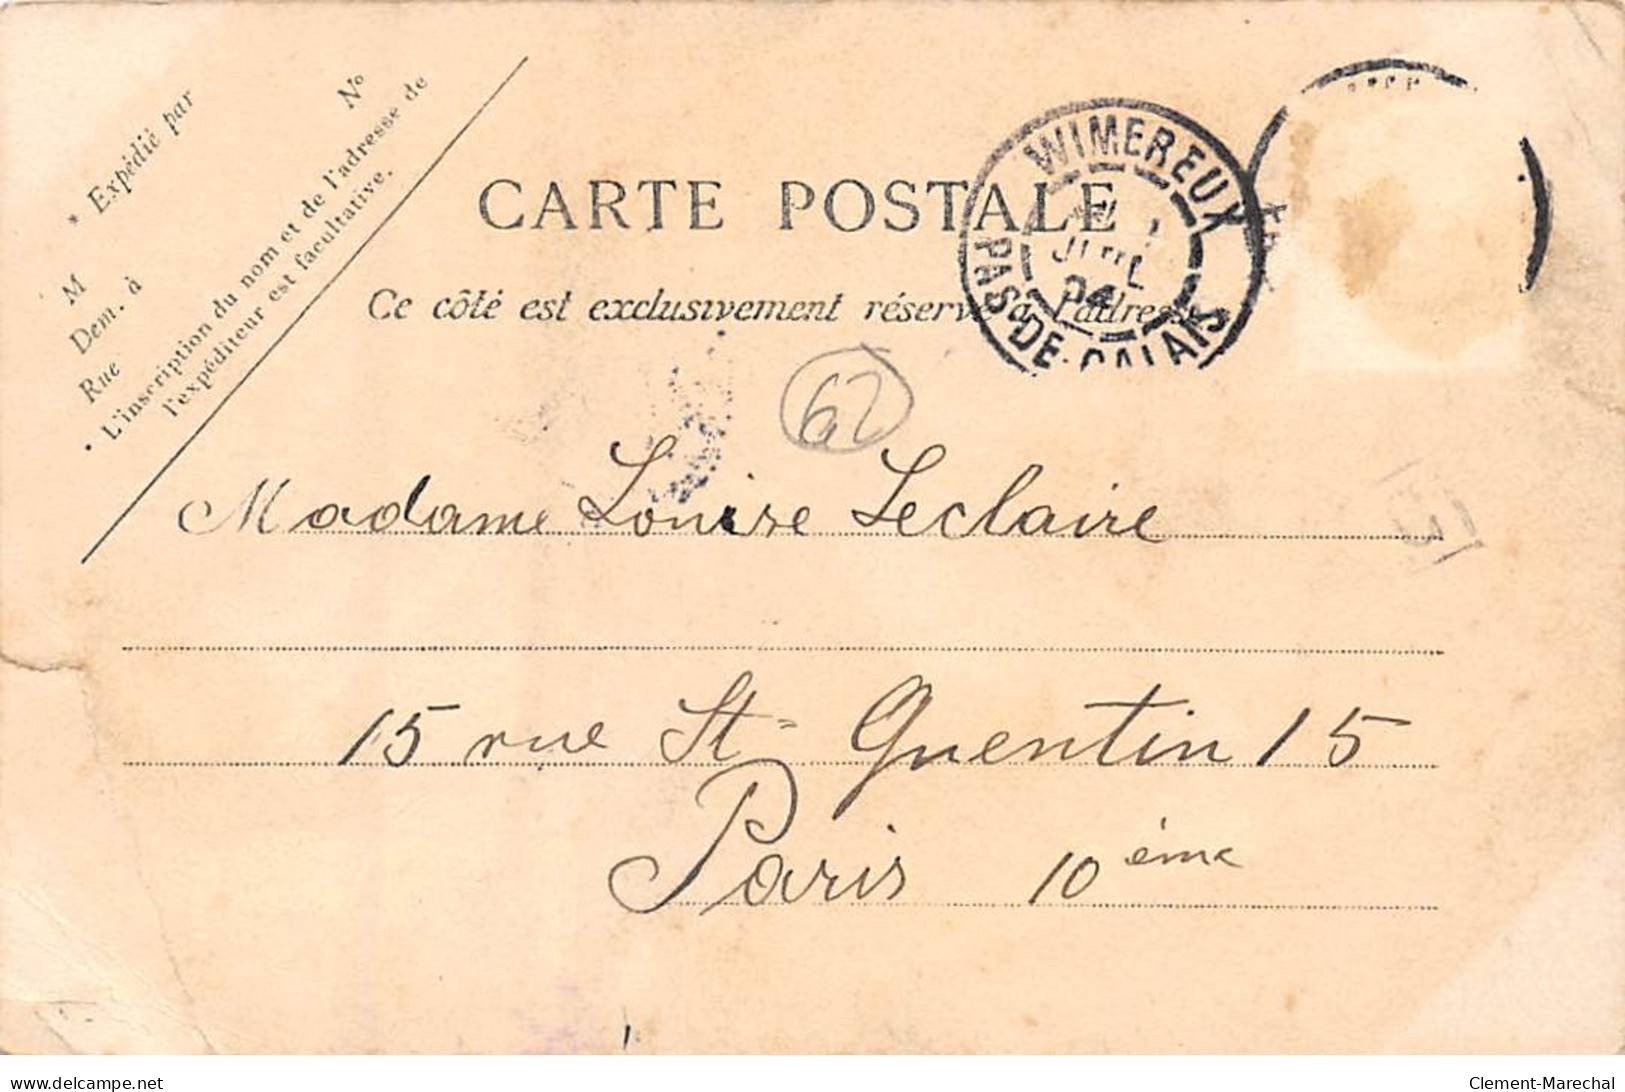 * Expédié par
N°
M
Dem. à
Rue
• L'inscription du nom et de l'adresse de
l'expéditeur est facultative.
CARTE POSTALE
Ce côté est exclusivement réservé à l'adresse
WIMEREUX
JUIL
04
PAS-DE-CALAIS
62
Madame Louise Leclaire
15 rue St= Quentin 15
Paris 10ème
delcampe.net
Clement-Marechal